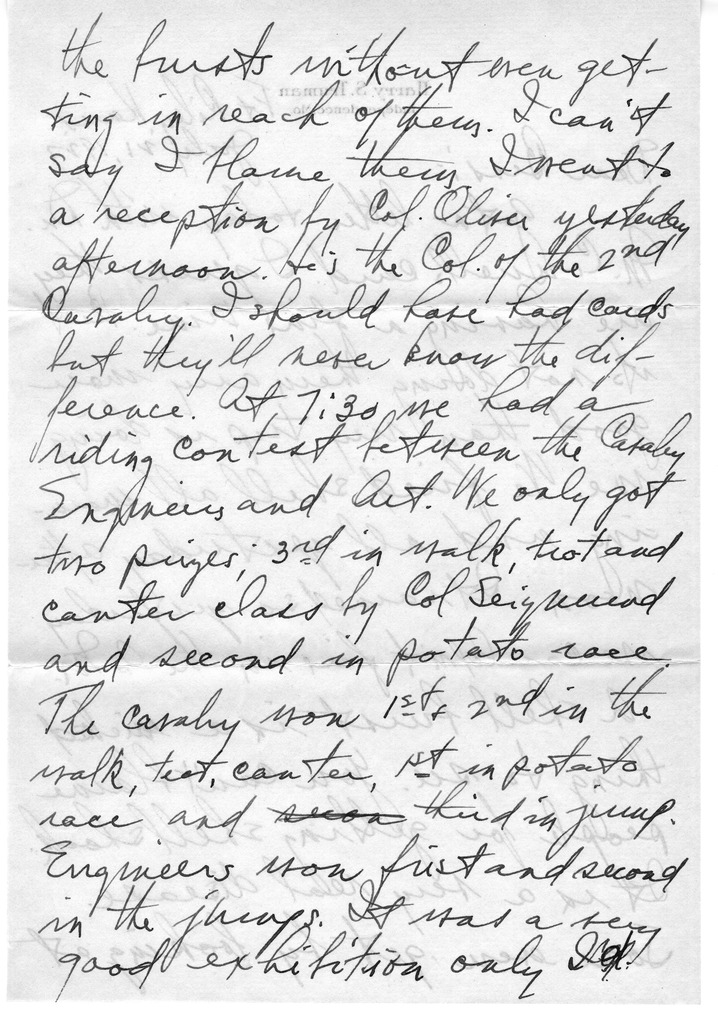 the bursts without even get-
ting in reach of them. I can't
say I blame them. I went to
a reception by Col. Oliver yesterday
afternoon. He's the Col. of the 2nd
Cavalry. I should have had cards
but they'll never know the dif-
ference. At 7:30 we had a
riding contest between the Cavalry
Engineers and Art. We only got
two prizes; 3rd in walk, trot and
canter class by Col Seigmund
and second in potato race.
The cavalry won 1st & 2nd in the
walk, trot, canter, 1st in potato
race and third in jump.
Engineers won first and second
in the jumps. It was a very
good exhibition only I